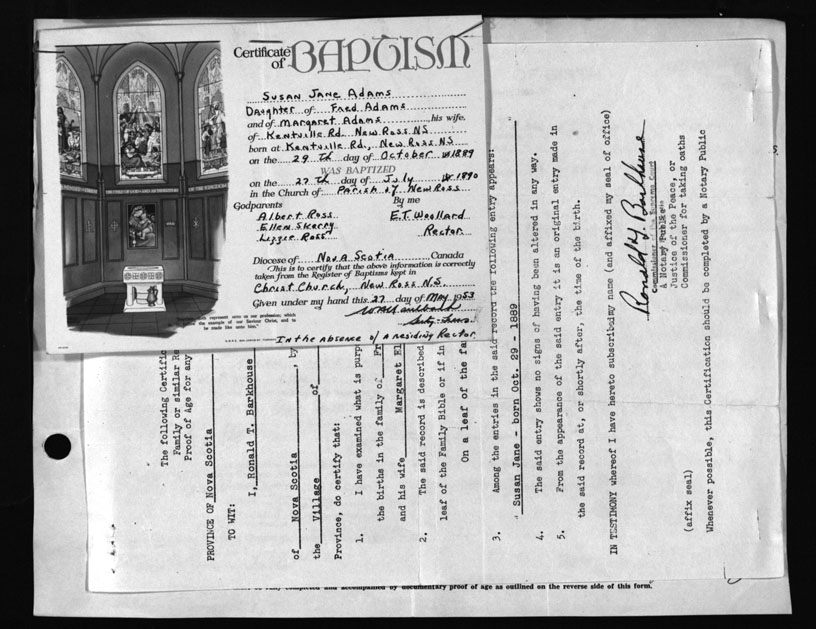 Certificate
of BAPTISM
Susan Jane Adams
Daughter of Fred Adams
and of Margaret Adams his wife.
of Kentville Rd. New Ross NS
born at Kentville Rd., New Ross N.S
on the 29th day of October 1889
WAS BAPTIZED
on the 27th day of July 1890
in the Church of Parish of New Ross
Godparents By me
Albert Ross E.T. Woollard
Ellen Skerry Rector
Lizzie Ross
Diocese of Nova Scotia, Canada
(This is to certify that the above information is correctly
taken from the Register of Baptisms kept in
Christ Church, New Ross N.S.
Given under my hand this 27 day of May 1953
In the absence of a residing Rector
represent unto us our profession; which
the example of our Saviour Christ, and to
be made like unto him."
The following Certific
Family or similar Re
Proof of Age for any
PROVINCE OF Nova Scotia
TO WIT:
I, Ronald T. Barkhouse
of Nova Scotia, by
the Village of
Province, do certify that:
1. I have examined what is purp
the births in the family of Fr
and his wife Margaret El
2. The said record is described
leaf of the Family Bible or if in
On a leaf of the fa
3. Among the entries in the said record the following entry appears:
" Susan Jane - born Oct. 29 - 1889 "
4. The said entry shows no signs of having been altered in any way.
5. From the appearance of the said entry it is an original entry made in
the said record at, or shortly after, the time of the birth.
IN TESTIMONY whereof I have hereto subscribed my name (and affixed my seal of office)
Ronald T. Barkhouse
Commissioner of the Supreme Court
A Notary Public
Justice of the Peace, or
Commissioner for taking oaths
(affix seal)
Whenever possible, this Certification should be completed by a Notary Public
completed and accompanied by documentary proof of age as outlined on the reverse side of this form.